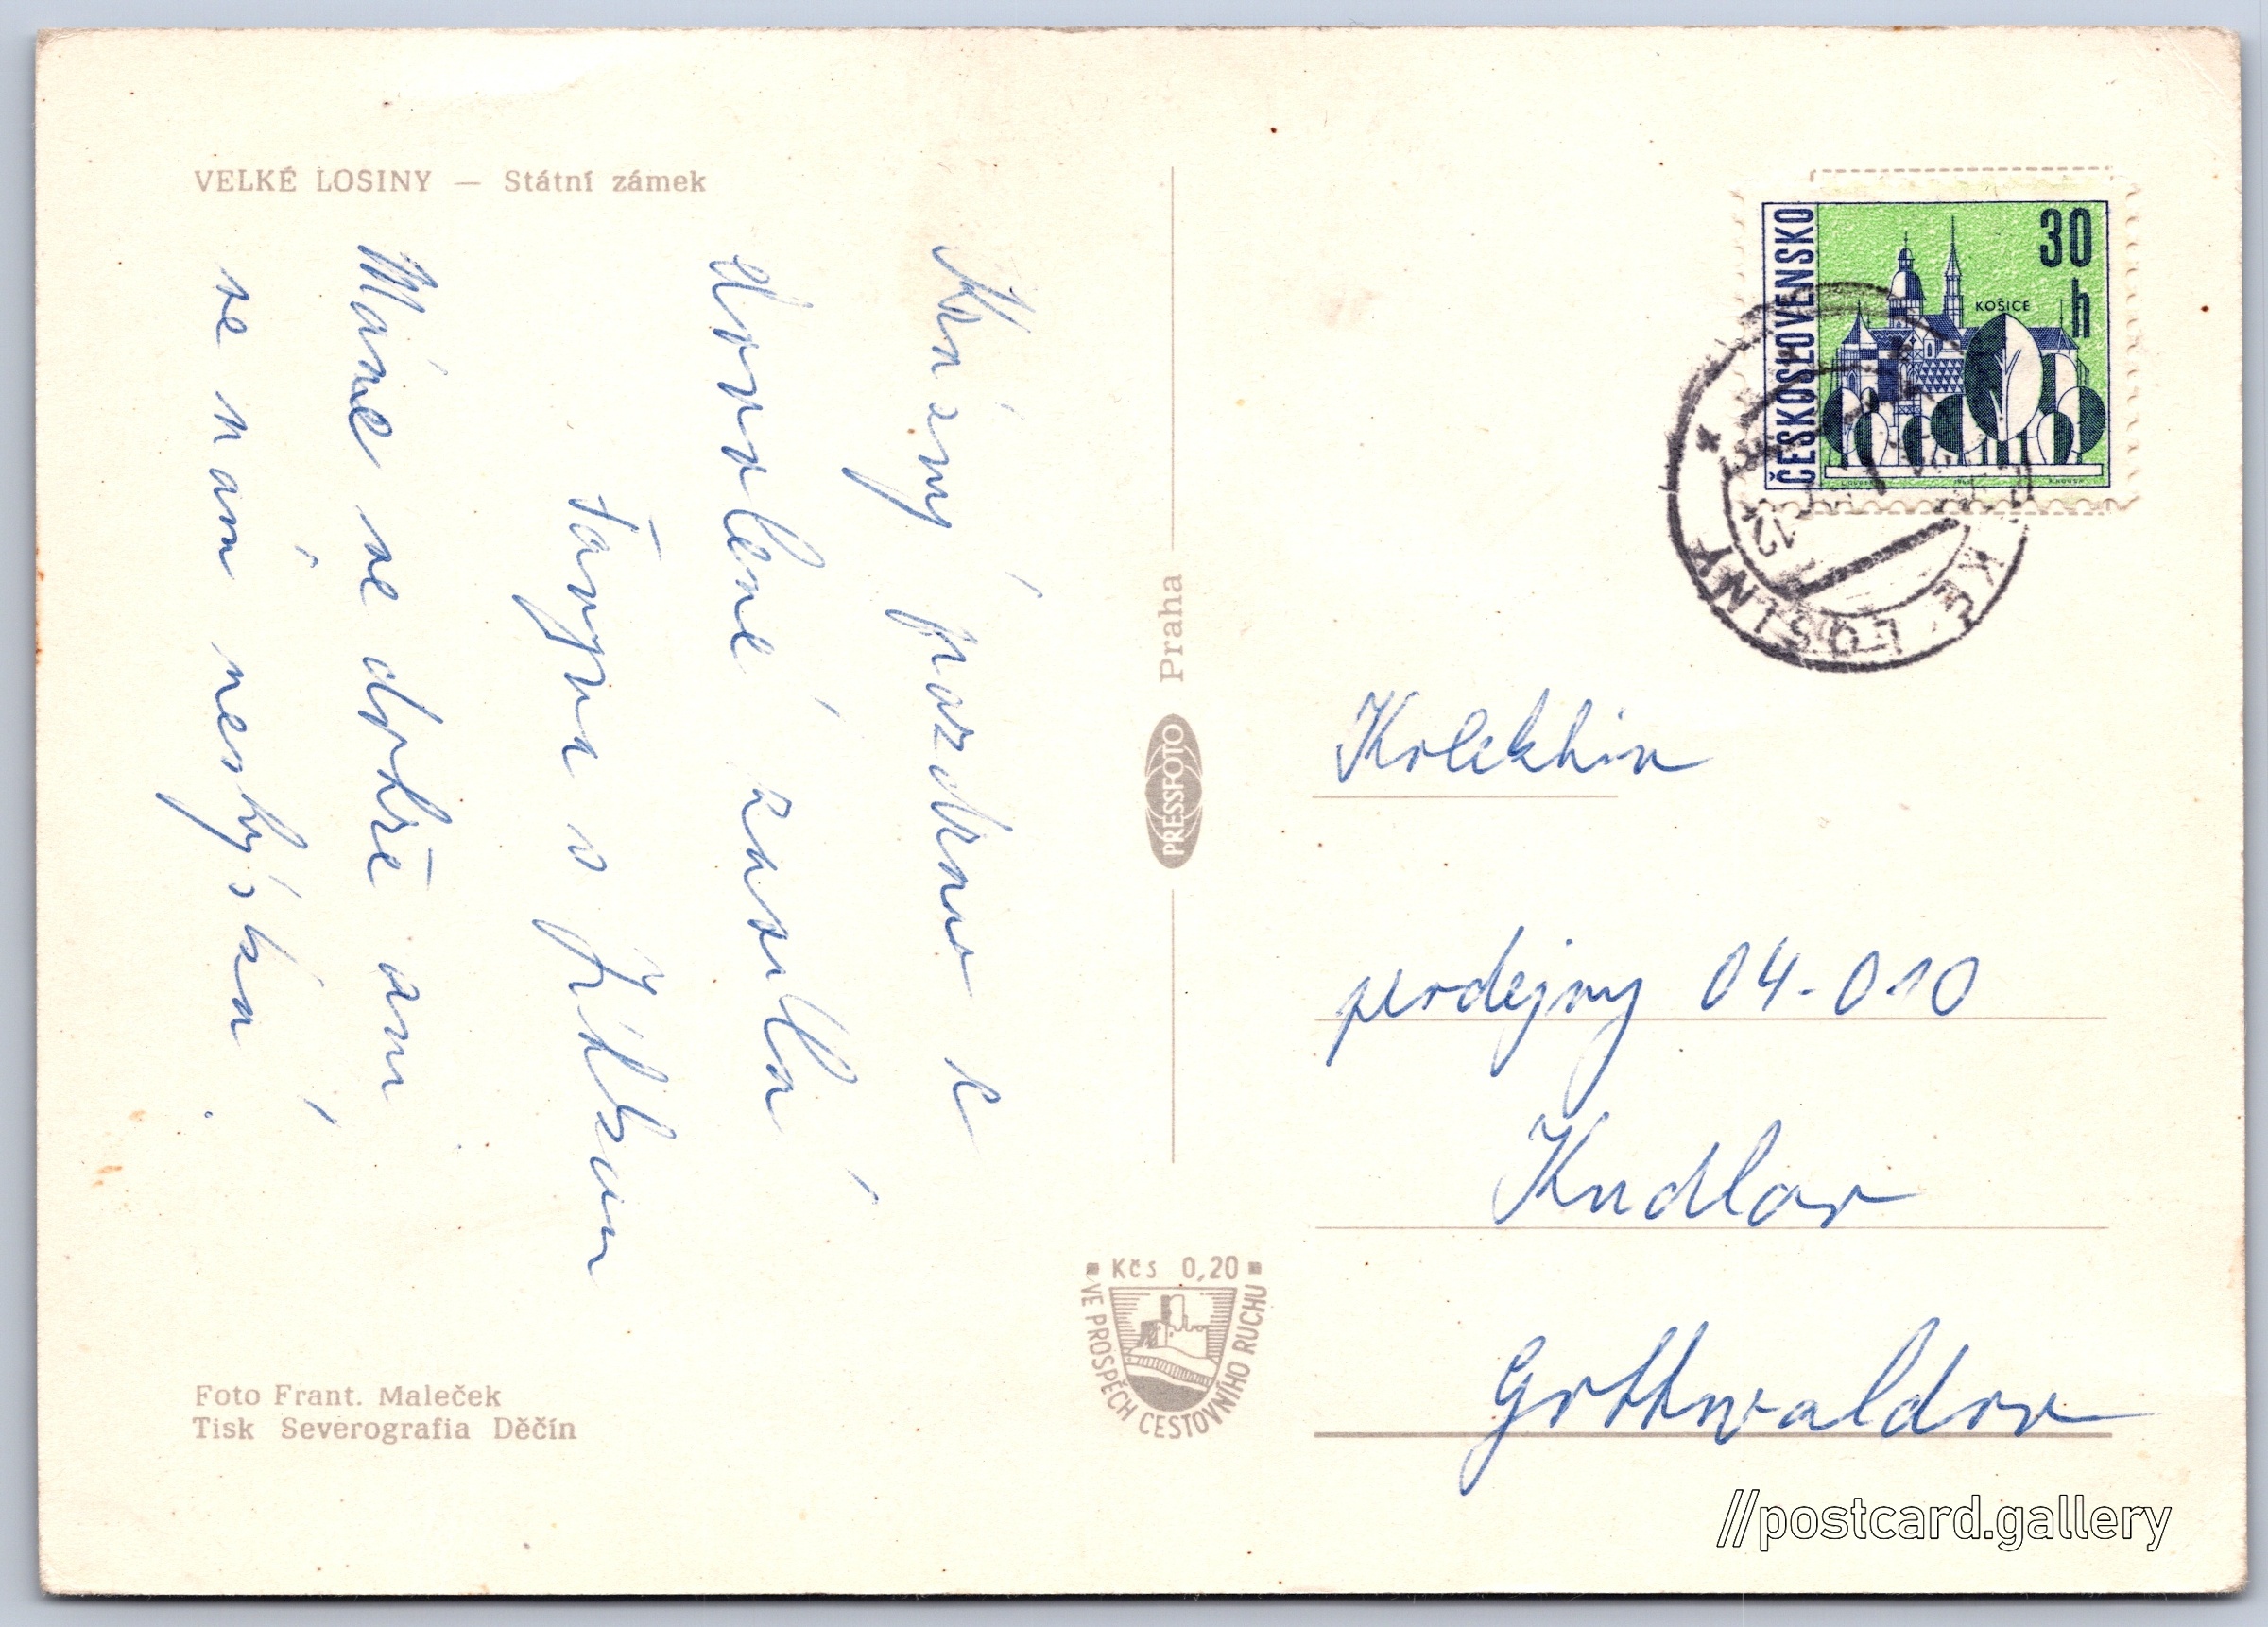 VELKÉ LOSINY — Státní zámek
Krásný pozdrav z
dovolené zasílá
s
Máme se dobře ani
se nám nestýská.
Foto Frant. Maleček
Tisk Severografia Děčín
PRESSFOTO Praha
Kčs 0,20
VE PROSPĚCH CESTOVNÍHO RUCHU
ČESKOSLOVENSKO
30
h
KOŠICE
KÉ LOSINY
12
Kolektiv
prodejny 04-010
Kudlov
Gottwaldov
//postcard.gallery